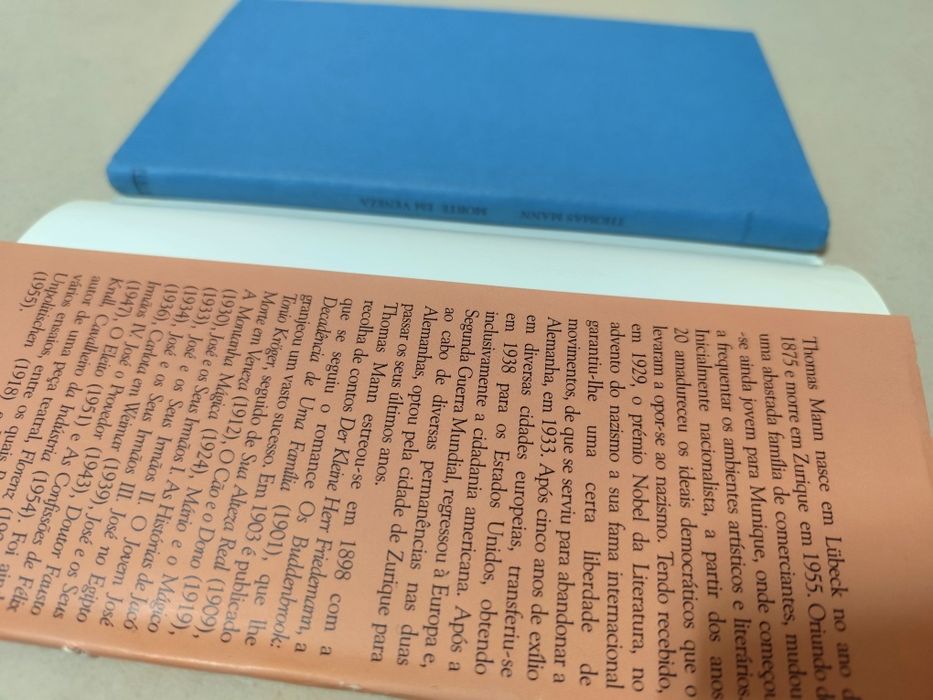 THOMAS MANN MORTE EM VENEZA
Thomas Mann nasce em Lübeck no ano
1875 e morre em Zurique em 1955. Oriundo
uma abastada família de comerciantes,
-se ainda jovem para Munique, onde
a frequentar os ambientes artísticos e literários.
Inicialmente nacionalista, a partir dos anos
20 amadureceu os ideais democráticos que o
levaram a opor-se ao nazismo. Tendo recebido,
em 1929, o prémio Nobel da Literatura, no
advento do nazismo a sua fama internacional
garantiu-lhe uma certa liberdade de
movimentos, de que se serviu para abandonar a
Alemanha, em 1933. Após cinco anos de exílio
em diversas cidades europeias, transferiu-se
em 1938 para os Estados Unidos, obtendo
inclusivamente a cidadania americana. Após a
Segunda Guerra Mundial, regressou à Europa e,
ao cabo de diversas permanências nas duas
Alemanhas, optou pela cidade de Zurique para
passar os seus últimos anos.
Thomas Mann estreou-se em 1898 com a
recolha de contos Der Kleine Herr Friedemann, a
que se seguiu o romance Os Buddenbrook:
Decadência de Uma Família (1901), que lhe
granjeou um vasto sucesso. Em 1903 é publicado
Tonio Kröger, seguido de Sua Alteza Real (1909),
Morte em Veneza (1912), O Cão e o Dono (1919),
A Montanha Mágica (1924), Mário e o Mágico
(1930), José e os Seus Irmãos I. As Histórias de Jacó
(1933), José e os Seus Irmãos II. O Jovem José
(1934), José e os Seus Irmãos III. José no Egipto
(1936), Carlota em Weimar (1939), José e os Seus
Irmãos IV. José o Provedor (1943), Doutor Fausto
(1947), O Eleito (1951) e As Confissões de Félix
Krull, Cavalheiro de Indústria (1954). Foi ainda
autor de uma peça teatral, Florenz
vários ensaios, entre os quais
Unpolitischen (1918) e
(1955).